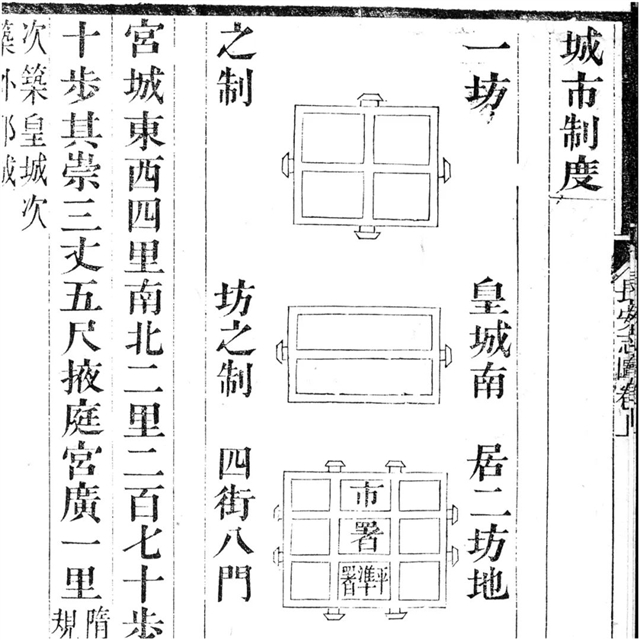 長安志圖卷
城市制度
一坊
之制
皇城南
坊之制
居二坊地
市
署
平準署
四街八門
宮城東西四里南北二里二百七十步
十步其崇三丈五尺掖庭宮廣一里
隋
規
次築皇城次
築外郭城